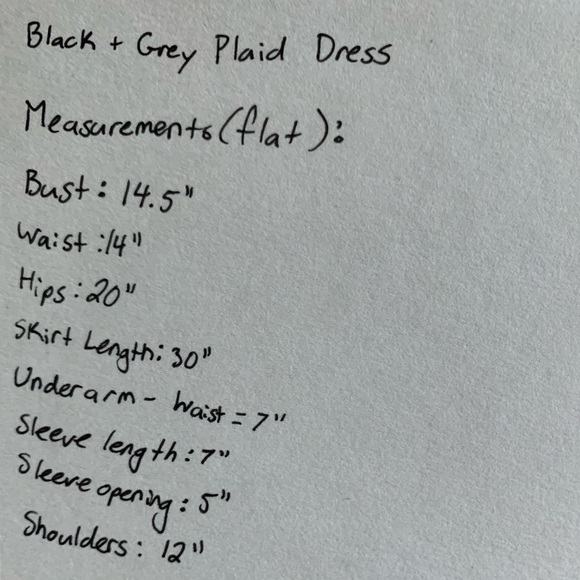 Black + Grey Plaid Dress
Measurements (flat):
Bust: 14.5"
Waist: 14"
Hips: 20"
Skirt Length: 30"
Underarm - Waist = 7"
Sleeve length: 7"
Sleeve opening: 5"
Shoulders: 12"